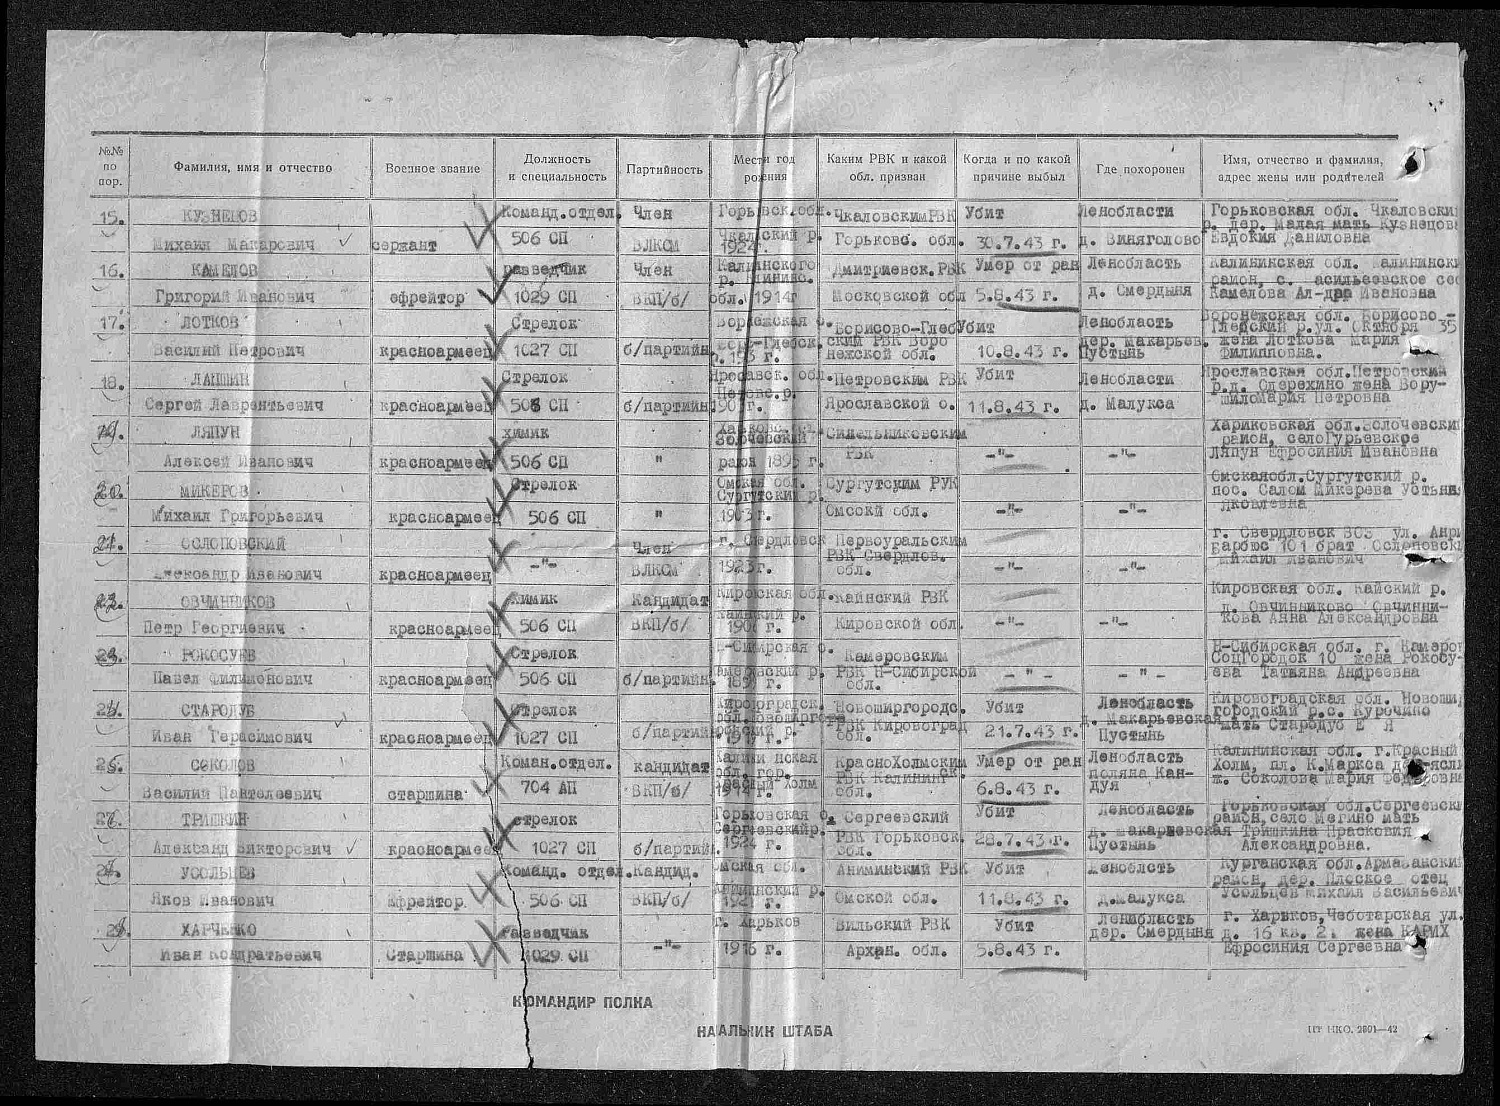 №№ по пор. | Фамилия, имя и отчество | Военное звание | Должность и специальность | Партийность | Место и год рождения | Каким РВК и какой обл. призван | Когда и по какой причине выбыл | Где похоронен | Имя, отчество и фамилия, адрес жены или родителей
15. КУЗНЕЦОВ Команд.отдел. Член Горьвск.обл. Чкаловским РВК Убит Ленобласти Горьковская обл. Чкаловски
р. дер. Малая мать Кузнецов
Михаил Макарович сержант 506 СП ВЛКСМ Чкалский р. 1924г. Горьковс. обл. 30.7.43 г. д. Виняголово Евдокия Даниловна
16. КАМЕЛОВ разведчик Член Калининского Дмитриевск.РВК Умер от ран Ленобласть Калининская обл. Калининск
район, с.
Григорий Иванович ефрейтор 1029 СП ВКП/б/ обл. 1914г Московской обл 5.8.43 г. д. Смердыня Камелова Ал-дра Ивановна
17. ЛОТКОВ Стрелок Борисово-Глеб Убит Ленобласть Воронежская обл. Борисово-
Глебский р.ул. Октября 35
Василий Петрович красноармеец 1027 СП б/партийн ский РВК Воро нежской обл. 10.8.43 г. дер. Макарьев. Пустынь жена Лоткова Мария
Филипповна.
18. ЛАПШИН Стрелок Яросавск. обл. Петровским РВК Убит Ленобласти Ярославская обл.Петровский
р.д. Сдерехино жена Вору-
Сергей Лаврентьевич красноармеец 506 СП б/партийн Ярославской о. 11.8.43 г. д. Малукса шилоМария Петровна
19. ЛЯПУН химик Синельниковским Хариковская обл.Золочевски
район, селоГурьевское
Алексей Иванович красноармеец 506 СП " район 1895 г. РВК -"- -"- Ляпун Ефросиния Ивановна
20. МИКЕРОВ Стрелок Омская обл. Сургутский р. Сургутским РУК Омскаяобл.Сургутский р.
пос. Салом Микерева Устинь
Михаил Григорьевич красноармеец 506 СП " 1903г. Омсскй обл. -"- -"- Яковлевна
21. ОСЛОПОВСКИЙ Член г. Свердловск Первоуральским г. Свердловск ул. Анри
Барбюс 101 брат Ослоповск
Александр Иванович красноармеец -"- ВЛКСМ 1923г. РВК Свердлов. обл. -"- -"- Михаил Иванович
22. ОВЧИННИКОВ Химик Кандидат Кировская обл. Кайнский РВК Кировская обл. Кайский р.
д. Овчинниково Овчинни-
Петр Георгиевич красноармеец 506 СП ВКП/б/ Кайнский р. Кировской обл. -"- -"- кова Анна Александровна
23. РОКОСУЕВ Стрелок Н-Сибирская о. Камеровским Н-Сибирская обл. г. Камеров
СоцГородок 10 жена Рокосу-
Павел Филимонович красноармеец 506 СП б/партийн. РВК Н-Сибирской обл. -"- -"- ева Татьяна Андреевна
24. СТАРОДУБ Стрелок Новоширгородс. Убит Ленобласть Кировоградская обл. Новоши
городский р.с. Курочино
Иван Герасимович красноармеец 1027 СП б/партийн РВК Кировоград обл. 21.7.43 г. д. Макарьевская Пустынь мать Стародуб Е Я
25. СОКОЛОВ Коман.отдел. кандидат Калининская КрасноХолмским Умер от ран Ленобласть Калининская обл. г.Красный
Холм, пл К.Маркса
Василий Пантелеевич старшина 704 АП ВКП/б/ обл. гор. Красный Холм РВК Калининск обл. 6.8.43 г. поляна Кан- дуя ж. Соколова Мария Федоровна
26. ТРИШКИН стрелок Горьковская о. Сергеевский Убит Ленобласть Горьковская обл.Сергеевски
район,село Мегино мать
Александ Викторович красноармеец 1027 СП б/партий. Сергеевскийр. 1924 г. РВК Горьковск. обл. 28.7.43.г. д. Макарьевская Пустынь Тришкина Прасковия
Александровна.
27. УСОЛЬЦЕВ Команд. отдел. Кандид. Омская обл. Аниминский РВК Убит Леноблсть Курганская обл.
район, дер. Плоское отец
Яков Иванович Ефрейтор 506 СП ВКП/б/ Омской обл. 11.8.43 г. д.Малукса Усольцев Михаил Васильевич
28. ХАРЧЕНКО разведчик г. Харьков Вильский РВК Убит Ленибласть г. Харьков,Чеботарская ул.
Иван Кондратьевич Старшина 1029 СП -"- 1916 г. Архан. обл. 5.8.43 г. дер. Смердыня д. 16 кв. 2. жена
Ефросиния Сергеевна
КОМАНДИР ПОЛКА
НААЛЬНИК ШТАБА
ПТ НКО. 2801—42